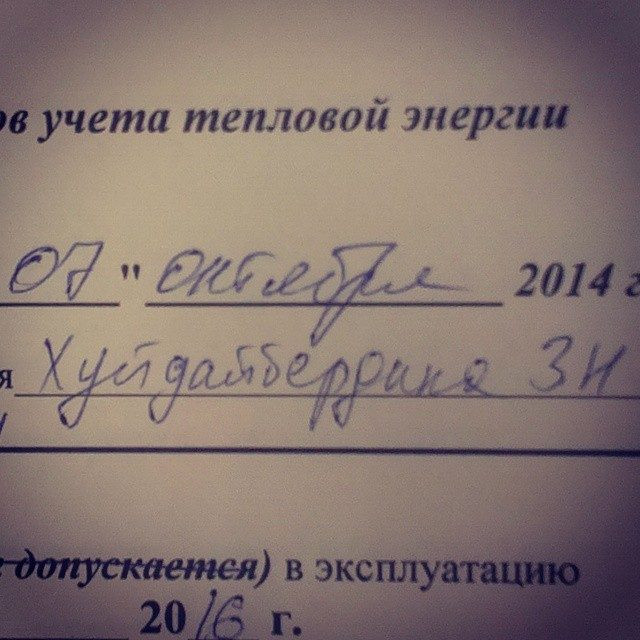 ов учета тепловой энергии
07 " октября 2014 г
я Хуйдайбердина ЗН
допускается) в эксплуатацию
2016 г.